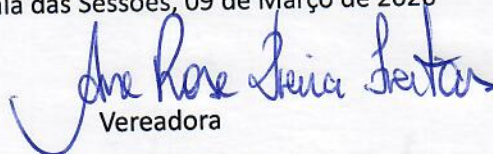 ala das Sessões, 09 de Março de 2020
Ana Rose Freitas
Vereadora